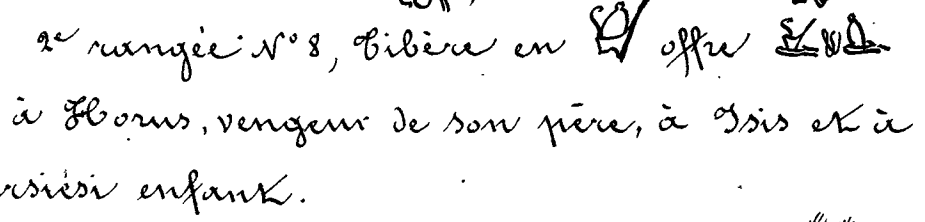 2e rangée N° 8, Tibère en offre
à Horus, vengeur de son père, à Isis et à
rsiési enfant.